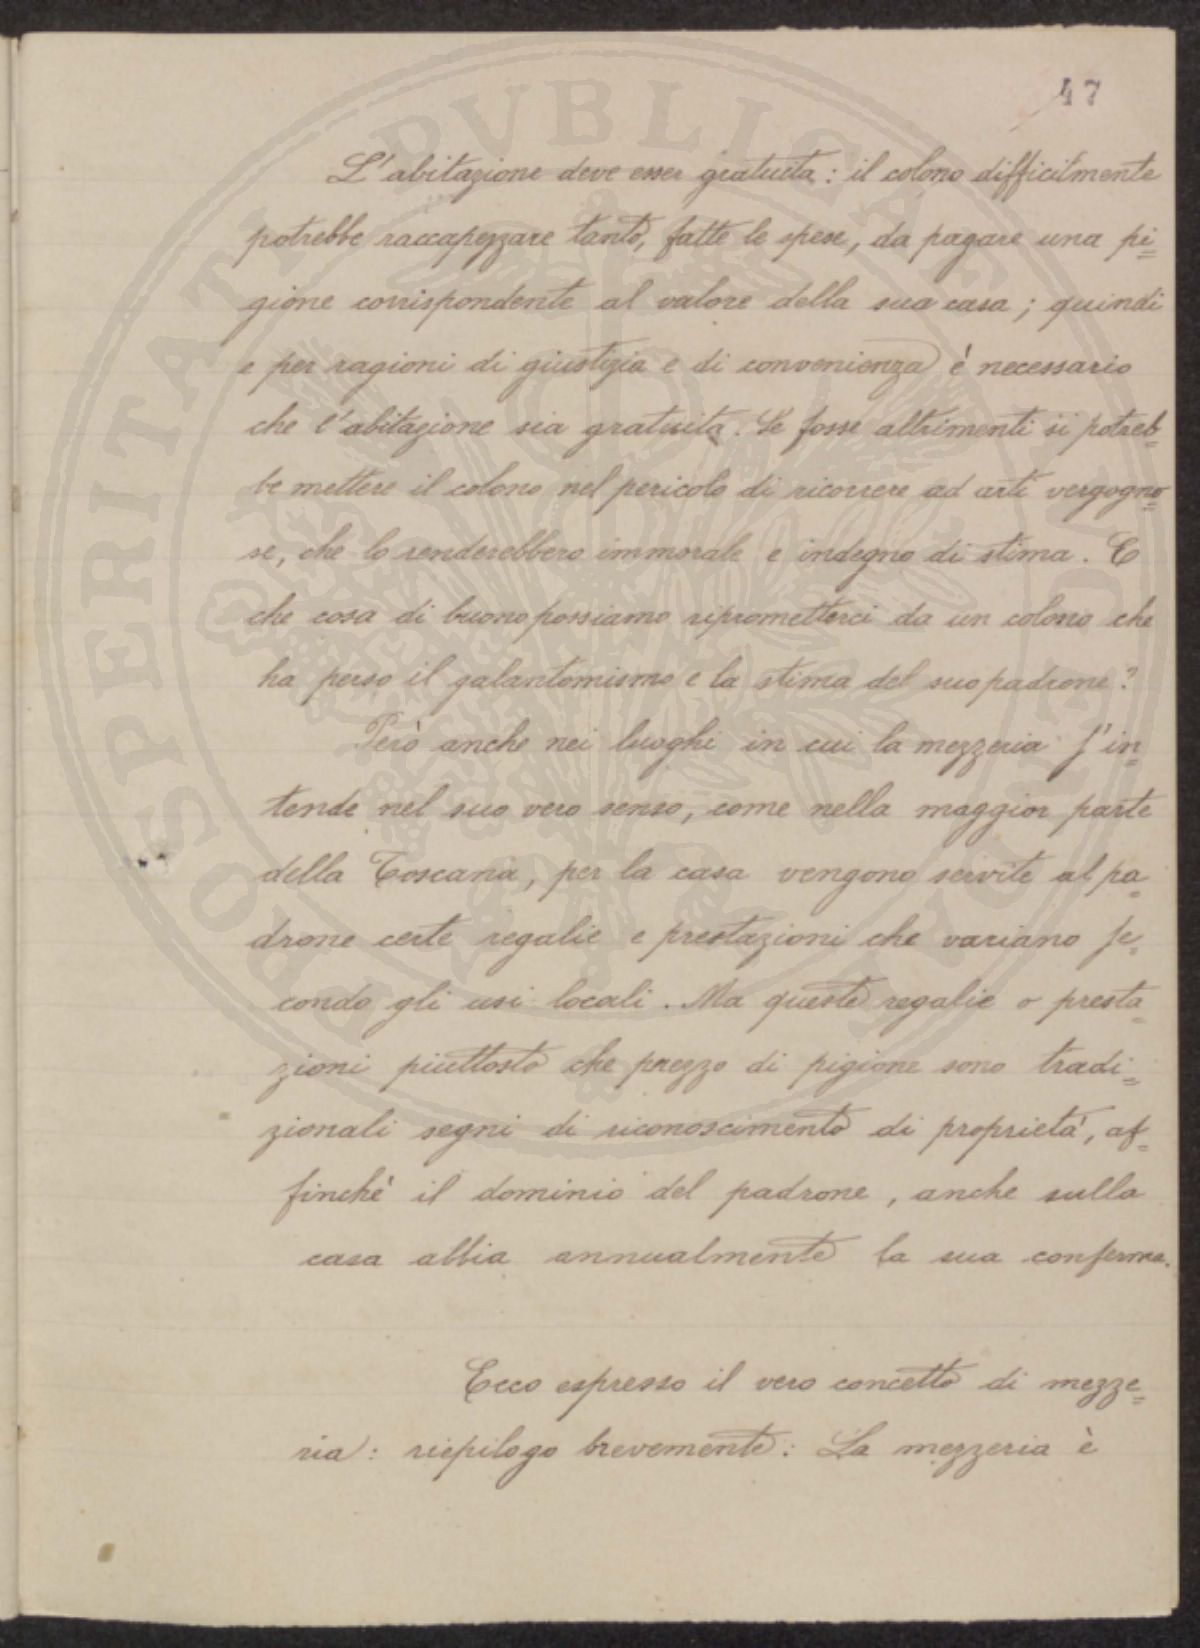 47
L'abitazione deve esser gratuita: il colono difficilmente
potrebbe raccapezzare tanto, fatte le spese, da pagare una pi=
gione corrispondente al valore della sua casa; quindi
e per ragioni di giustizia e di convenienza è necessario
che l'abitazione sia gratuita. Se fosse altrimenti si potreb=
be mettere il colono nel pericolo di ricorrere ad arti vergogno=
se, che lo renderebbero immorale e indegno di stima. E
che cosa di buono possiamo ripromettersi da un colono che
ha perso il galantomismo e la stima del suo padrone?
Però anche nei luoghi in cui la mezzeria s'in=
tende nel suo vero senso, come nella maggior parte
della Toscana, per la casa vengono servite al pa=
drone certe regalie e prestazioni che variano se=
condo gli usi locali. Ma queste regalie o presta=
zioni piuttosto che prezzo di pigione sono tradi=
zionali segni di riconoscimento di proprietà, af=
finchè il dominio del padrone, anche sulla
casa abbia annualmente la sua conferma.
Ecco espresso il vero concetto di mezze=
ria: riepilogo brevemente: La mezzeria è
PROSPERITATI PVBLICAE